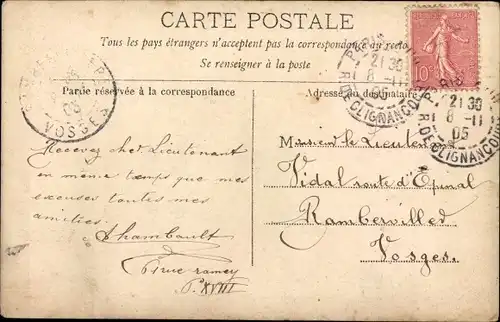 CARTE POSTALE
Tous les pays étrangers n'acceptent pas la correspondance au recto
Se renseigner à la poste
Partie réservée à la correspondance
Adresse du destinataire
10c
PARIS
21 30
8 - 11
05
R. DE CLIGNANCOURT
PARIS
21 30
8 - 11
05
R. DE CLIGNANCOURT
05
VOSGES
Recevez cher Lieutenant
en même temps que mes
excuses toutes mes
amitiés.
Chambault
rue ramey
P. XVIII
Monsieur le Lieutenant
Vidal route d'Epinal
Rambervilled
Vosges.